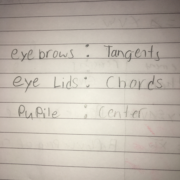 eyebrows : Tangents
eye Lids : Chords
Pupile : Center